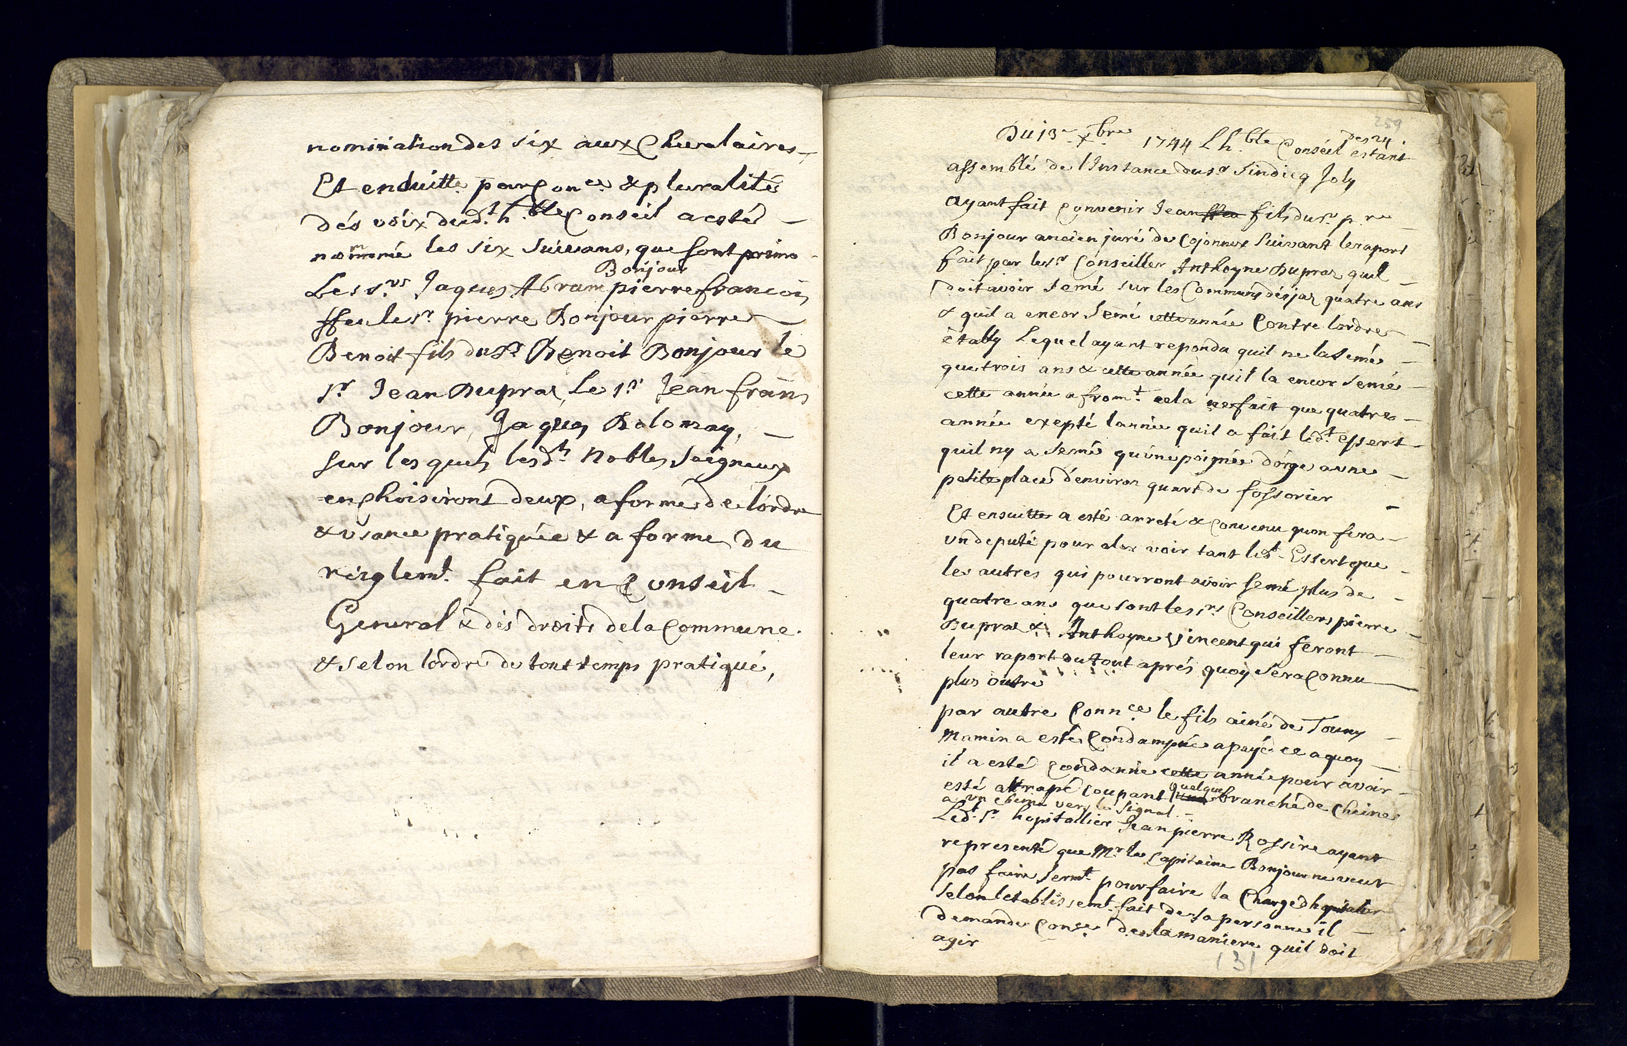 nomination des six aux Chevalaires
Et ensuitte par Conce & pluralités
dés voix dudt. h.ble Conseil a esté
nommé les six suivans, que sont primo
Bonjour
Les srs. Jaques Abram pierre francois
ffeu le sr. pierre Bonjour pierre
Benoit fils du Sr. Benoit Bonjour le
sr. Jean Dupraz Le sr. Jean frans
Bonjour, Jaques Bolomay,
sur les quels lesdts Nobles Seigneurs
en Choisiront deux, a forme de lordre
& usance pratiquée & a forme du
reiglemt. fait en Conseil
General & dés droits de la Commune
& selon lordre de tout temps pratiqué,
259
Du 13e xbre 1744 L h.ble Conseil estant
assemblé de l'Instance du sr. Sindicq Joly
ayant fait Convenir Jean fils du sr. prre
Bonjour ancien juré de Cojonnex suivant le raport
fait par le sr. Conseiller Anthoyne Dupraz quil
doit avoir semé sur les Communs dés jaz quatre ans
& quil a encor semé cette année Contre lordre
établÿ Lequel ayant repondu quil ne la semé
que trois ans & cette année quil la encor semé
cette année a fromt. cela ne fait que quatres
année exepté lannée quil a fait ledt. essert
quil ny a semé qu'une poignée d'orge a une
petite place d'environ quart de fossorier
Et ensuitte a esté arreté & Convenu quon fera
un deputé pour aler voir tant ledt. Essert que
les autrés qui pourront avoir semé plus de
quatre ans que sont les srs Conseillers pierre
Dupraz & Anthoyne Vincent qui feront
leur raport du tout aprés quoy sera Connu
plus outre
par autre Connce le fils ainé de Touny
Mamin a esté Condampné a payé ce a quoy
il a esté Condanné cette année pour avoir
quelque
esté attrapé coupant branche de Cheine
a un Chene vers le Signal.
Ledt. sr. hopitallier Jean pierre Rossire ayant
representé que Mr. le Capitaine Bonjour ne veut
pas faire sermt. pour faire la Charge dhopitalier
selon létablissemt. fait de sa personne il
demande Conse de la maniere quil doit
agir
131